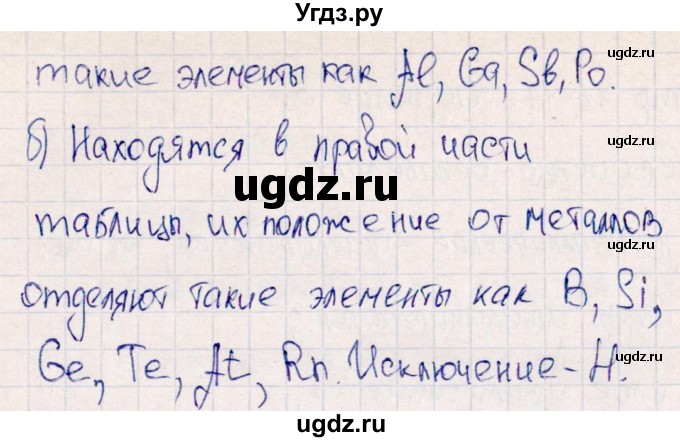 Угдз.ру
ugdz.ru
такие элементы как Al, Ga, Sb, Po.
ugdz.ru
ugdz.ru
б) Находятся в правой части
ugdz.ru
ugdz.ru
таблицы, их положение от металлов
ugdz.ru
отделяют такие элементы как B, Si,
ugdz.ru
Ge, Te, At, Rn. Исключение - H.
ugdz.ru
ugdz.ru